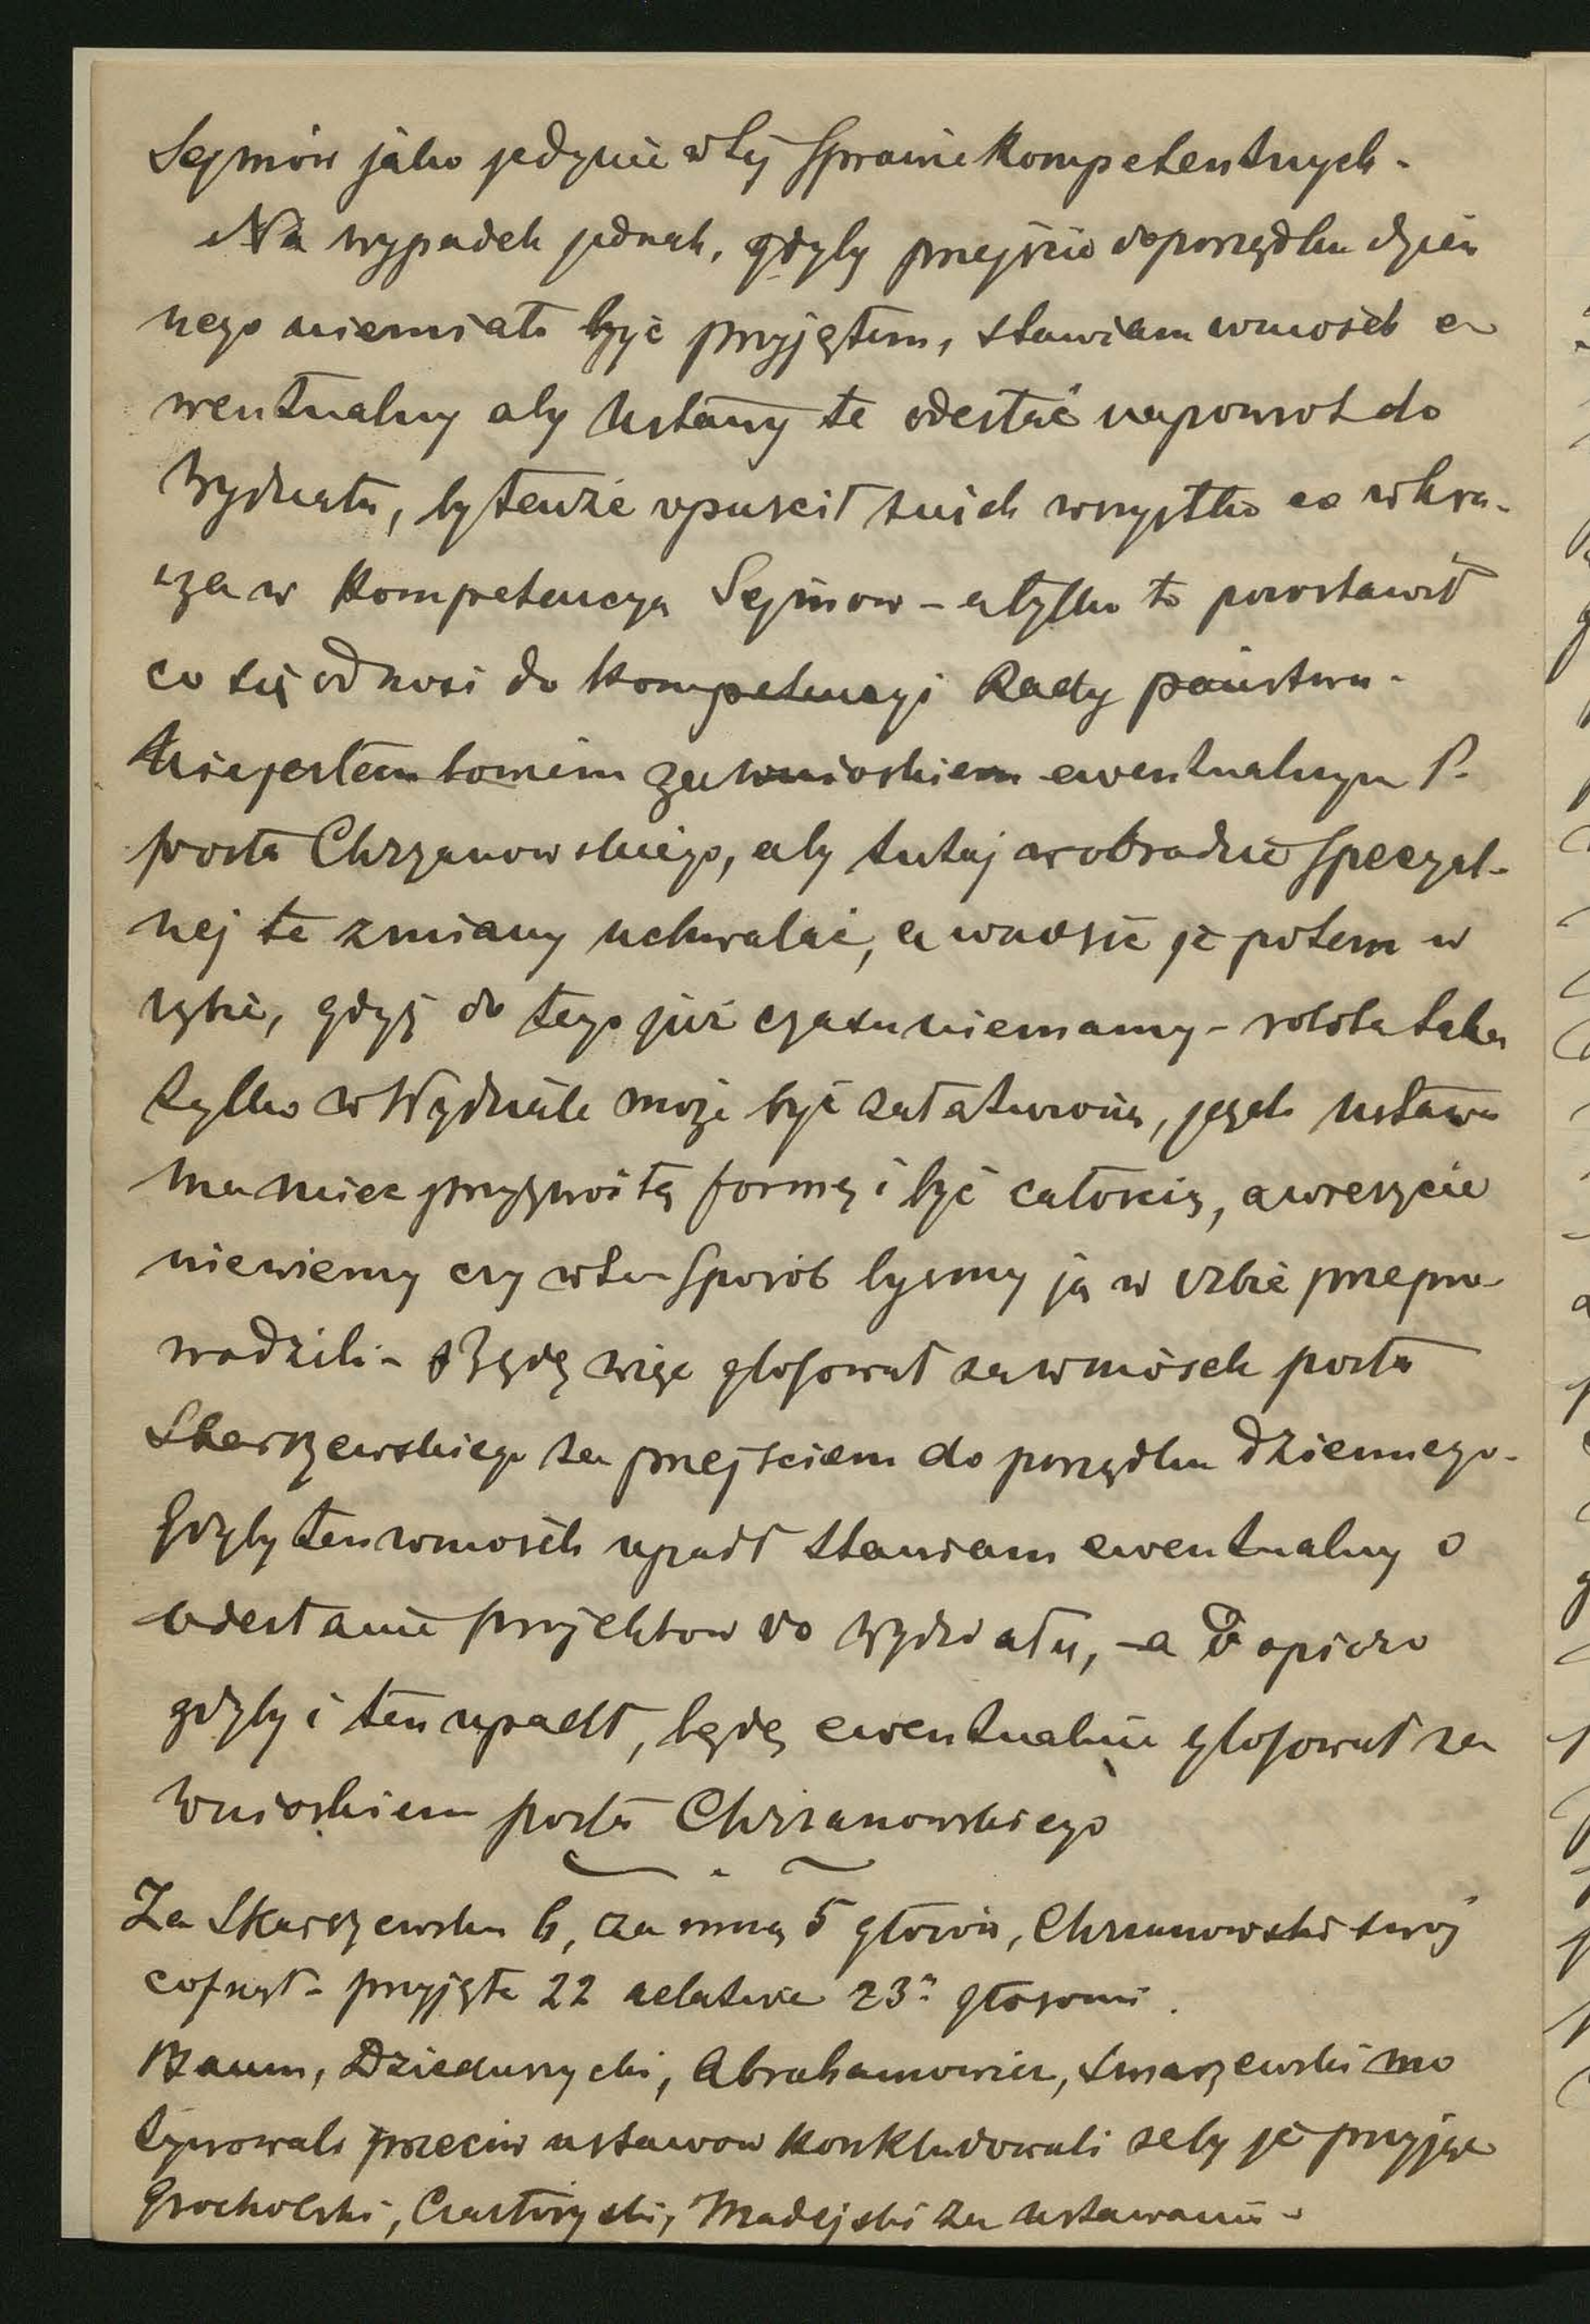 Sejmów jako jedynie w tej sprawie kompetentnych.
Na wypadek jednak, gdyby przejście do porządku dzien
nego niemiało być przyjętem, stawiam wniosek e
wentualny aby ustawy te odesłać napowrot do
Wydziału, by tenże opuścił z nich wszystko co wkra-
cza w kompetencya Sejmow – a tylko to pozostawił
co się odnosi do kompetencyi Rady państwa.
Nie jestem bowiem za wnioskiem ewentualnym P.
posła Chrzanowskiego, aby tutaj w obradzie specyal-
nej te zmiany uchwalać, a wnosić je potem w
izbie, gdyż do tego już czasu niemamy – robota taka
tylko w Wydziale może być załatwioną, jeżeli ustawa
ma miec przyzwoitą formę i być całością, a wreszcie
niewiemy czy w ten sposób byśmy ją w izbie przepro
wadzili – Będę więc głosował za wniosek posła
Skarszewskiego za przejściem do porządku dziennego.
Gdyby ten wniosek upadł stawiam ewentualny o
odesłanie projektow do Wydziału, – a dopiero
gdyby i ten upadł, będę ewentualnie głosował za
wnioskiem posła Chrzanowskiego
Za Skarszewskim 6, za mną 5 głosów, Chrzanowski swój
cofnął – przyjęte 22 relative 23 głosami.
Baum, Dzieduszycki, Abrahamowicz, Smarzewski mo
tywowali przeciw ustawow konkludowali żeby je przyjąć
Grocholski, Czartoryski, Madejski za ustawami –